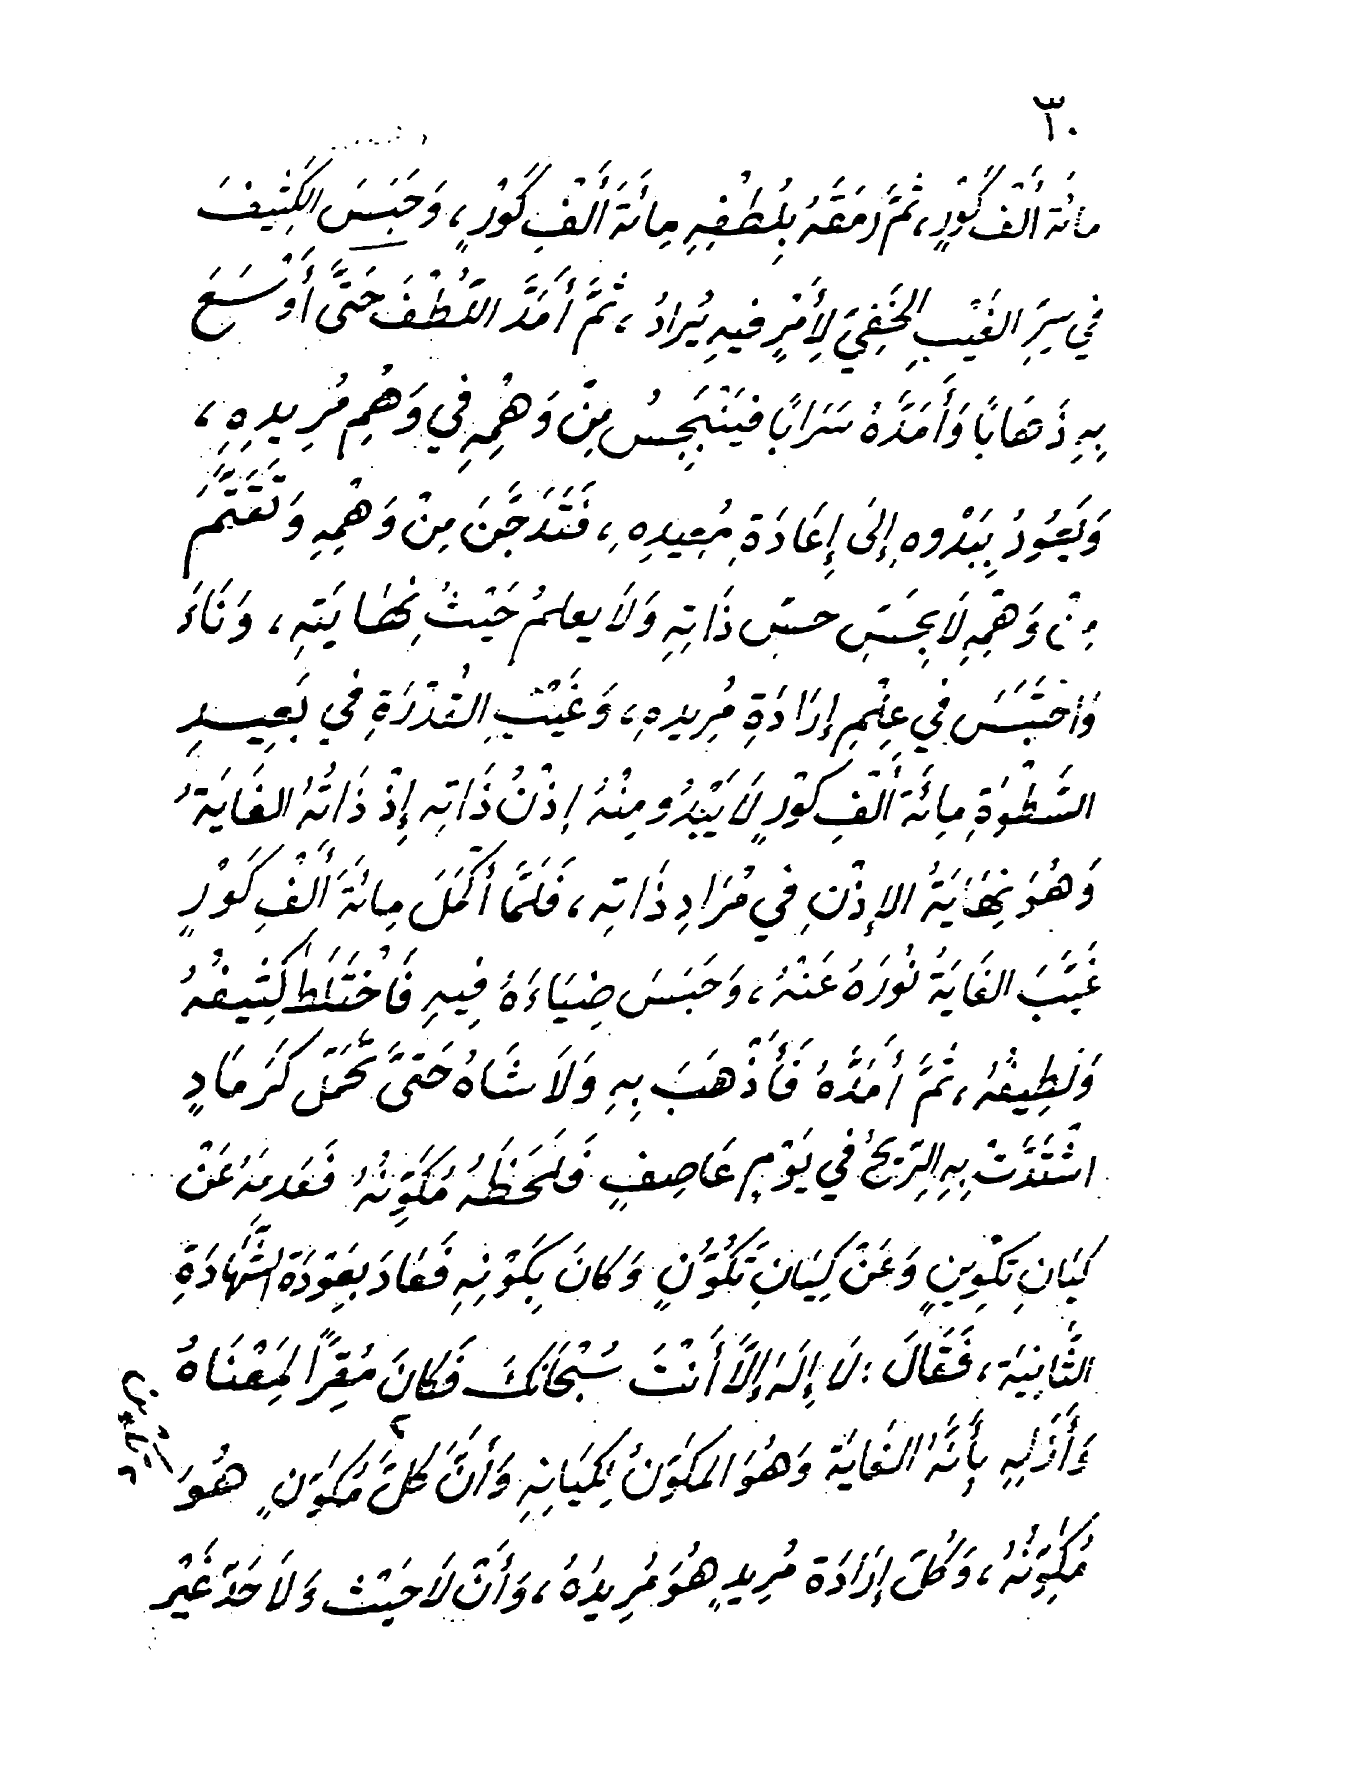 ٣٠
مائة أَلْف كَوْرٍ، ثُمَّ رَمَقَهُ بِلُطْفِهِ مِائَةَ أَلْفِ كَوْرٍ، وَحَبَسَ الكَثِيفَ
في سِرِّ الغَيْبِ الخَفِيِّ لِأَمْرٍ فيهِ يُرادُ، ثُمَّ أَمَدَّ اللُّطْفَ حَتَّى أَوْسَعَ
بِهِ ذَهَابًا وَأَمَدَّهُ سَرَابًا فَيَنْبَجِسُ مِنْ وَهْمِهِ فِي وَهْمِ مُرِيدِهِ،
وَيَعُودُ بِبَدْوِهِ إِلَى إِعَادَةِ مُعِيدِهِ، فَتَدَجَّنَ مِنْ وَهْمِهِ وَتَقَتَّمَ
مِنْ وَهْمِهِ لَا بِحِسِّ حسِّ ذَاتِهِ وَلَا يعلمُ حَيْثُ نِهَايَتِهِ، وَنَاءَ
وَاحْتَبَسَ فِي عِلْمِ إِرَادَةِ مُرِيدِهِ، وَغَيْبِ القُدْرَةِ فِي بَعِيدِ
السَّطْوَةِ مِائَةَ أَلْفِ كَوْرٍ لَا يَبْدُو مِنْهُ إِذْنُ ذَاتِهِ إِذْ ذَاتُهُ الغَايَةُ
وَهُوَ نِهَايَةُ الإِذْنِ فِي مُرَادِ ذَاتِهِ، فَلَمَّا أَكْمَلَ مِائَةَ أَلْفِ كَوْرٍ
غَيَّبَ الغَايَةُ نُورَهُ عَنْهُ، وَحَبَسَ ضِيَاءَهُ فِيهِ فَاخْتَلَطَ كَثِيفُهُ
وَلَطِيفُهُ، ثُمَّ أَمَدَّهُ فَأَذْهَبَ بِهِ وَلَاشَاهُ حَتَّى تَحَمَّل كَرَمَادٍ
اشْتَدَّتْ بِهِ الرِّيحُ فِي يَوْمٍ عَاصِفٍ فَلَحَظَهُ مُكَوِّنُهُ فَعَدِمَهُ عَنْ
كِيَانِ تَكْوِينٍ وَعَنْ كِيَانِ تَكَوُّنٍ وَكَانَ بِكَوْنِهِ فَعَادَ بِعَوْدَة الشَّهَادَةِ
الثَّانِيَة، فَقَالَ: لَا إِلَهَ إِلَّا أَنْتَ سُبْحَانَكَ فَكَانَ مُقِرًّا لِمَعْنَاهُ
وَأَزَلِهِ بِأَنَّهُ الغَايَة وَهُوَ المكوِّنُ لِكِيَانِهِ وَأَنَّ كُلَّ مُكَوِّنٍ هُوَ
مُكَوِّنُهُ، وَكُلّ إِرَادَة مُرِيدٍ هُوَ مُرِيدُهُ، وَأَنْ لَا حَيْث وَلَا حَدّ غَيْر